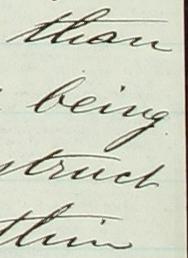 than
being
struct
thin